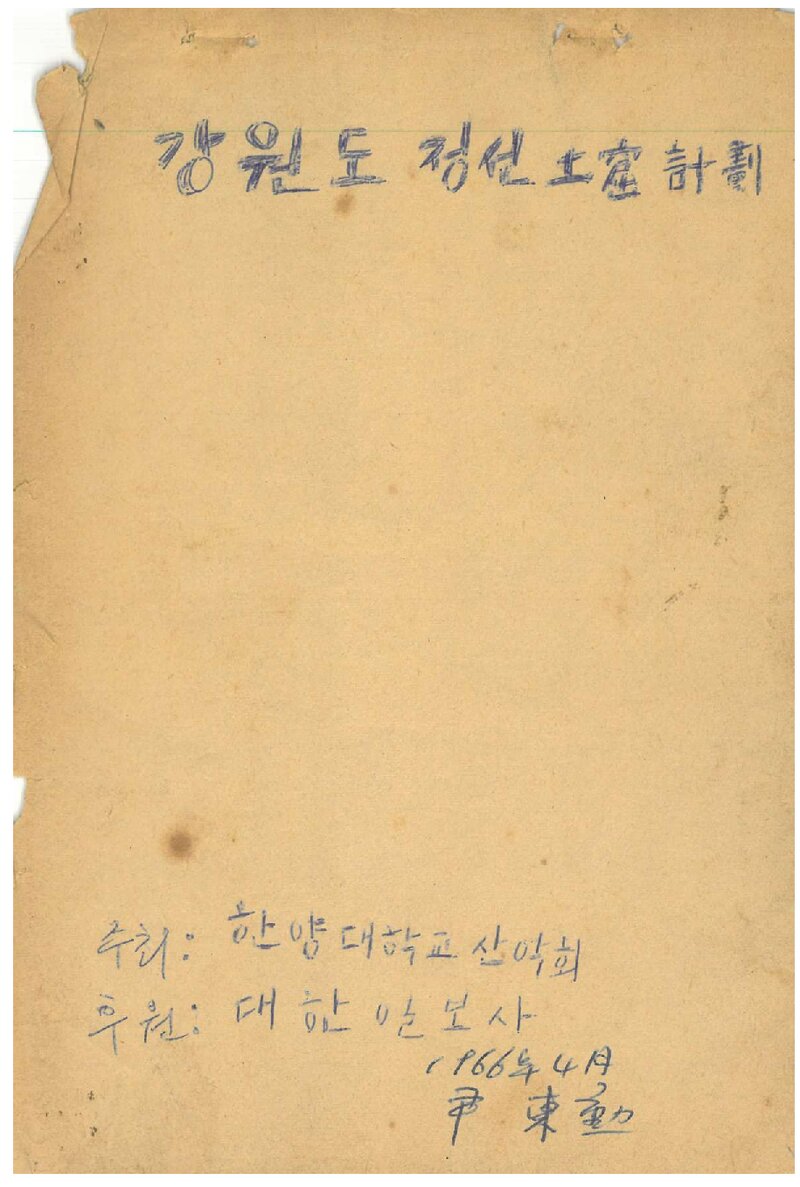 강원도 정선 土窟 計劃
주최: 한양대학교 산악회
후원: 대한일보사
1966年 4月
尹 東 勳